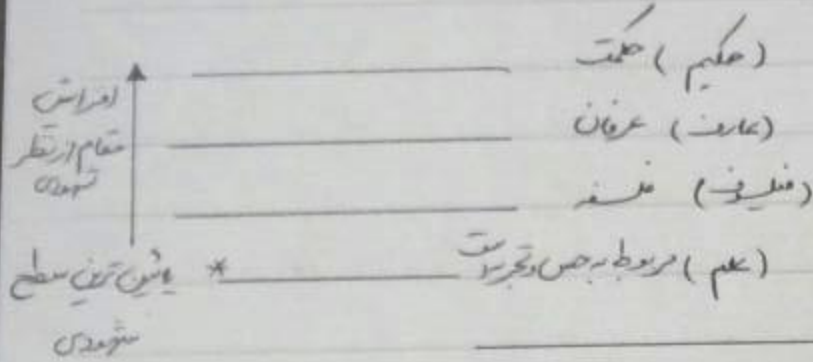 (حکیم) حکمت
(عارف) عرفان
(فیلسوف) فلسفه
(علم) مربوط به حس و تجربه است
افزایش
مقام از نظر
شهودی
* پائین ترین سطح
شهودی